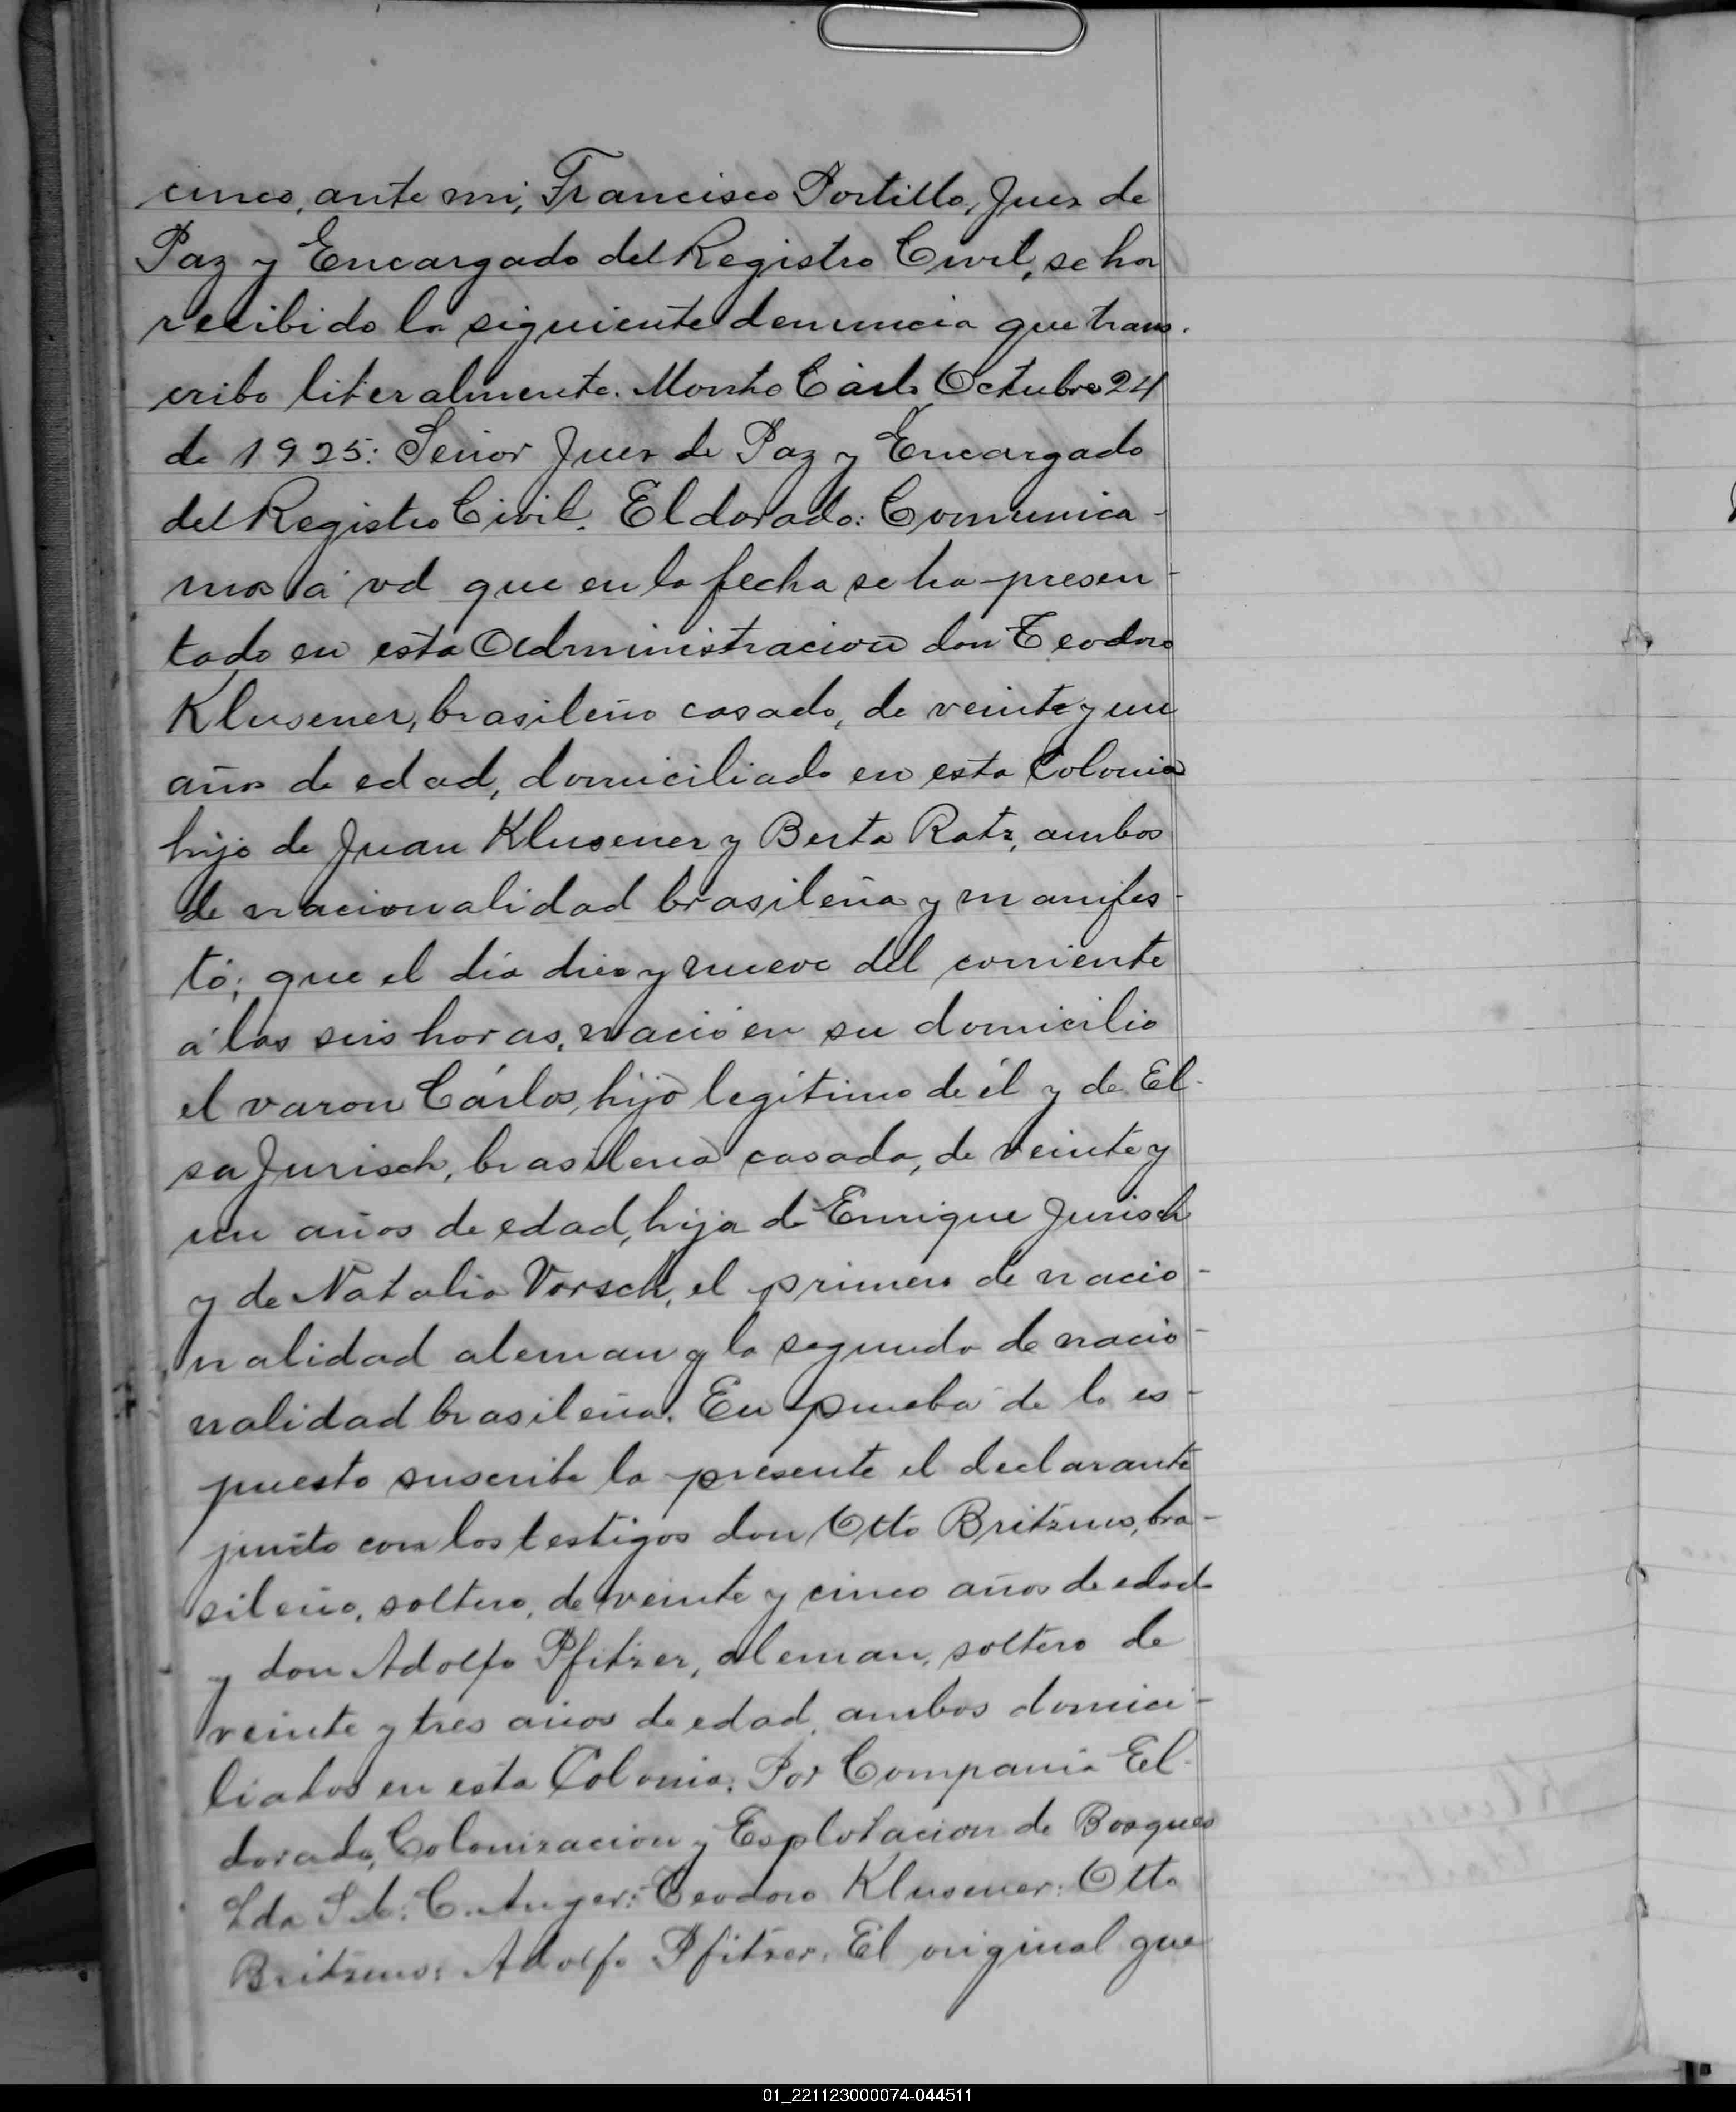 cinco, ante mi, Francisco Portillo, Juez de
Paz y Encargado del Registro Civil, se ha
recibido la siguiente denuncia que trans-
cribo literalmente. Monte Carlo Octubre 24
de 1925: Señor Juez de Paz y Encargado
del Registro Civil. Eldorado: Comunica-
mos á vd que en la fecha se ha presen-
tado en esta Administracion don Teodoro
Klusener, brasileño casado, de veinte y un
años de edad, domiciliado en esta Colonia
hijo de Juan Klusener y Berta Ratz, ambos
de nacionalidad brasileña y manifes-
tó; que el día diez y nueve del corriente
á las seis horas, nació en su domicilio
el varon Cárlos, hijo legítimo de él y de El-
sa Jurisch, brasilena casada, de veinte y
un años de edad, hija de Enrique Jurisch
y de Natalia Vorsch, el primero de nacio-
nalidad aleman y la segunda de nacio-
nalidad brasileña. En prueba de lo es-
puesto suscribe la presente el declarante
junto con los testigos don Otto Britzius, bra-
sileño, soltero, de veinte y cinco años de edad
y don Adolfo Pfitzer, aleman, soltero de
veinte y tres años de edad, ambos domici-
liados en esta Colonia. Por Compania El-
dorado, Colonizacion y Esplotacion de Bosques
Lda S. A.: C. Auger: Teodoro Klusener: Otto
Britzius: Adolfo Pfitzer. El original que
01_221123000074-044511